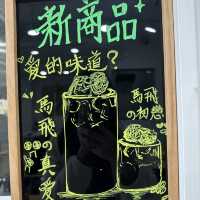 新商品
親的味道？
馬飛の真愛
馬飛の初戀